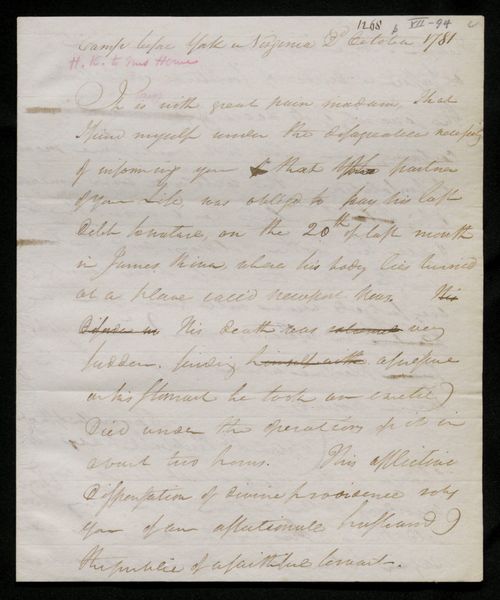 1268 XII-94
Camp before York in Virginia 2d October 1781
H. K. to Mrs
It is with great pain madam, that
I find myself under the disagreeable necessity
of informing you that the partner
of your Life, was obliged to pay his last
Debt to nature, on the 20th of last month
in James River where his body lies buried
at a place called Newport News. His
His death was very
sudden. finding himself with a pressure
on his stomach he took an emetic &
Died under the operation of it in
about two hours. This afflictive
Dispensation of divine providence robs
you of an affectionate husband &
the public of a faithful servant.